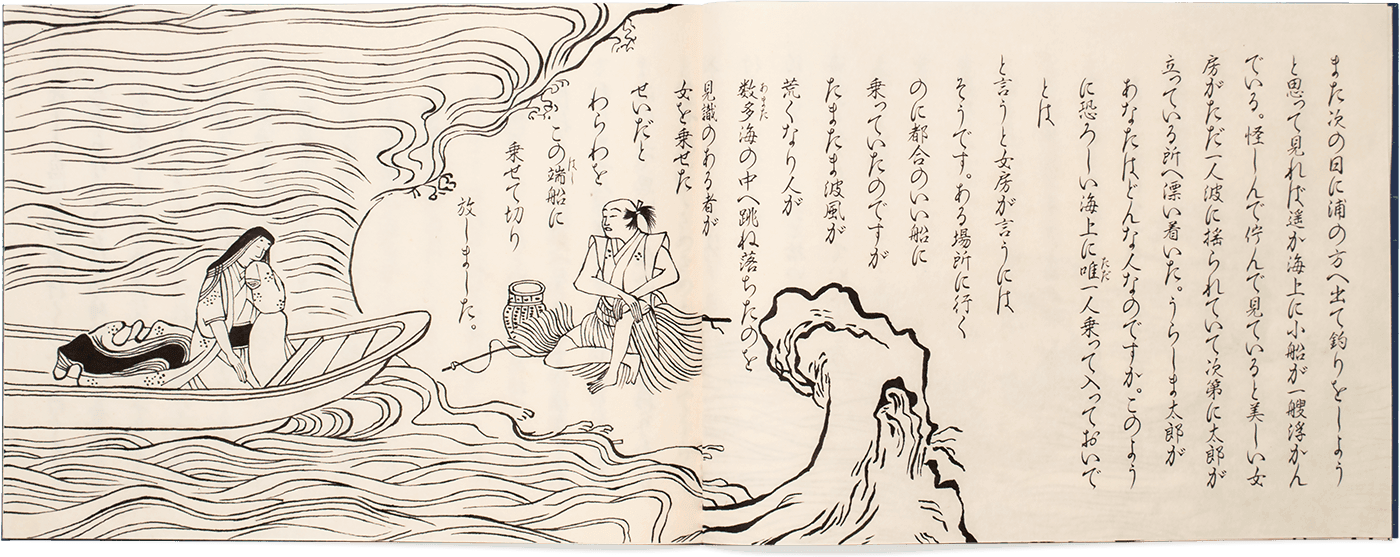 また次の日に浦の方へ出て釣りをしよう
と思って見れば遥か海上に小船が一艘浮かん
でいる。怪しんで佇んで見ていると美しい女
房がただ一人波に揺られていて次第に太郎が
立っている所へ漂い着いた。うらしま太郎が
あなたはどんな人なのですか。このよう
に恐ろしい海上に唯一人乗って入っておいで
とは
と言うと女房が言うには
そうです。ある場所に行く
のに都合のいい船に
乗っていたのですが
たまたま波風が
荒くなり人が
数多海の中へ跳ね落ちたのを
見識のある者が
女を乗せた
せいだと
わらわを
この端船に
乗せて切り
放しました。